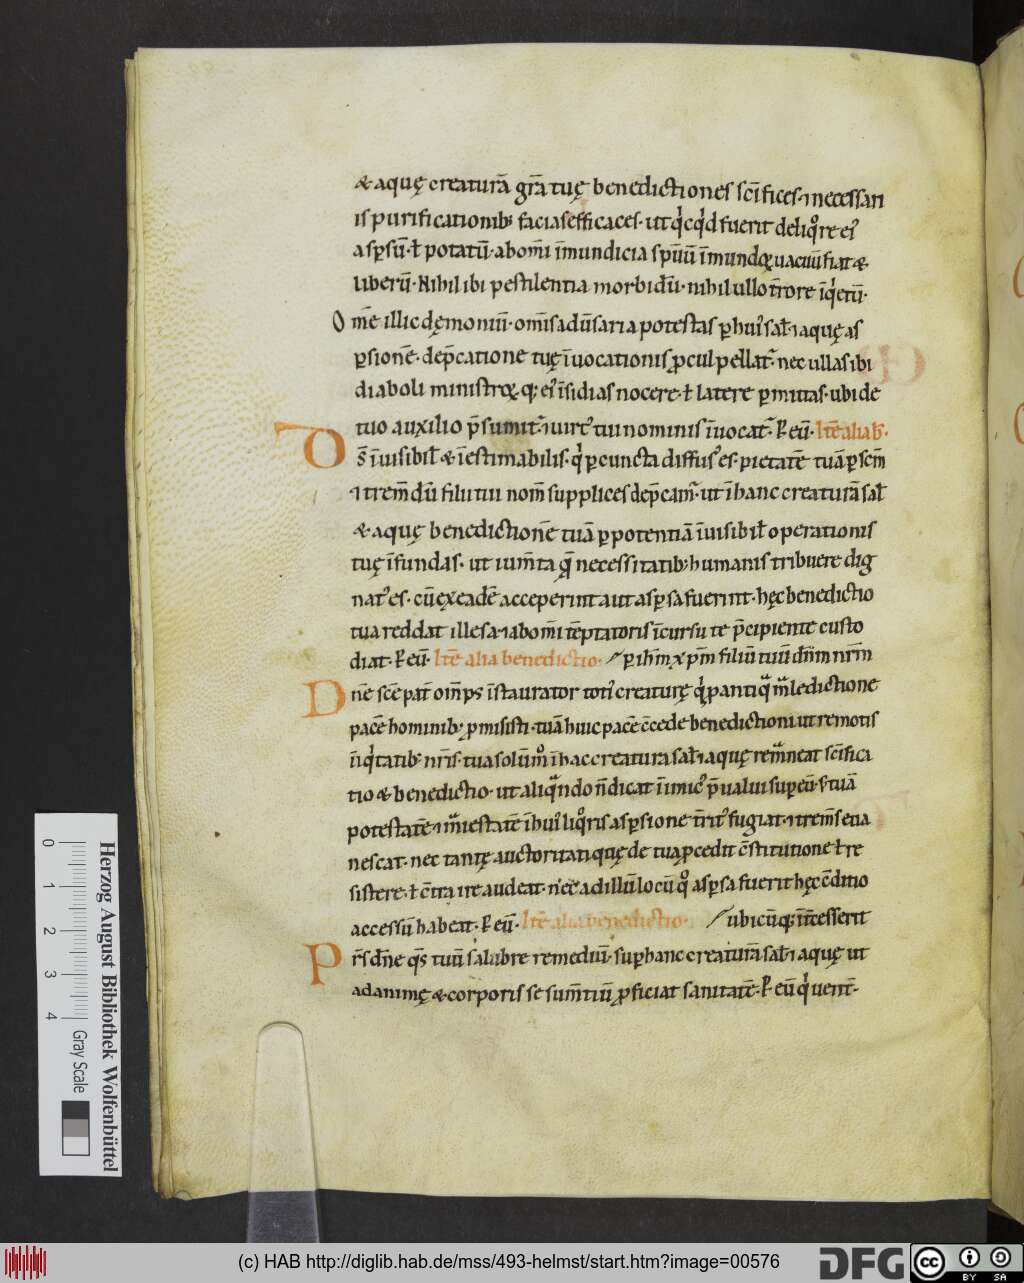 & aquę creaturā grā tuę benedictiones scīfices· ⁊ necessari
is purificationib; facias efficaces· ut qicqid fuerit deliqore ei9
aspsū· ł potatū· abomi īmundicia spuū īmundoꝝ vacuū fiat &
liberū· Nihil ibi pestilentia morbidū· nihil ullo tīrore īqietū·
Ome illic dęmoniū· omīs adūsaria potestas p hui9 sał· ⁊ aquę as
psionē· depcatione tuę īuocationis pcul pellat· nec ullas ibi
diaboli ministroꝝ q; ei9 īsidias nocere· ł latere pmittas· ubi de
tuo auxilio psumit· ⁊ uirt9 tui nominis īuocat· P eū· Itē alia b·
Ds̄ īuisibił & īestimabilis· qi p cuncta diffus9 es· pietatē tuā p scm̄
⁊ trem̄dū filii tui nom̄ supplices depcam· ut ī hanc creaturā sał
& aquę benedictionē tuā p potentiā īuisibił operationis
tuę īfundas· ut iumta quę necessitatib; humanis tribuere dig
nat9 es· cū ex eadē acceperint aut aspsa fuerint· hęc benedictio
tua reddat illesa· ⁊ abomi tēptatoris īcursu te pcipiente custo
diat· P eū· Itē alia benedictio· p ihm̄ xpm̄ filiū tuū dnm̄ nrm̄
Dn̄e scē pat om̄ps īstaurator toti9 creaturę qi p antiqā mledictione
pacē hominib; pmisisti· tuā huic pacē ccede benedictioni ut remotis
īiqitatib; nris· tua solūmo ī hac creatura sał ⁊ aquę remneat scīfica
tio & benedictio· ut aliqando n̄ dicat īimic9 pualui sup eū· s; tuā
potestatē ⁊ maiestatē ī hui9 liqoris aspsione trit9 fugiat· ⁊ trem̄s eua
nescat· nec tantę auctoritati quę de tua pcedit cstitutione ł re
sistere· ł ctra ire audeat· n̄ec ad illū locū qo aspsa fuerit hęc cditio
accessū habeat· P eū· Itē alia benedictio· ubicūq; int̄cesserit
Prs̄ dn̄e qs tuū salubre remediū· sup hanc creaturā sał· ⁊ aquę ut
ad animę & corporis se sumtiū pficiat sanitatē· P eū qi uent̄·
Herzog August Bibliothek Wolfenbüttel
0 1 2 3 4
Gray Scale
(c) HAB http://diglib.hab.de/mss/493-helmst/start.htm?image=00576
DFG
cc BY SA